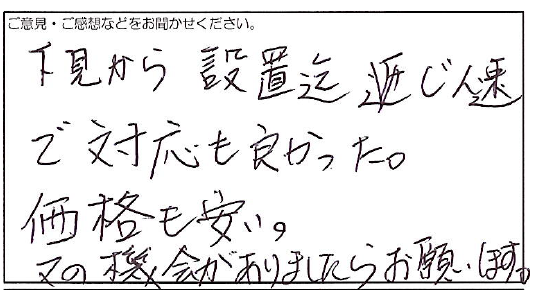 ご意見・ご感想などをお聞かせください。
下見から設置迄 じん速
で対応も良かった。
価格も安い。
又の機会がありましたらお願いします。